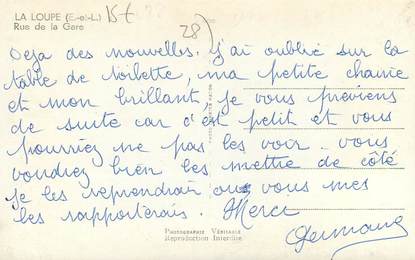 LA LOUPE (E.-et-L.) 15 f
Rue de la Gare
28)
Deja des nouvelles. J'ai oublié sur la
table de toilette, ma petite chaine
et mon brillant, je vous previens
de suite car c'est petit et vous
pourriez ne pas les voir. vous
voudrez bien les mettre de côté
je les reprendrai ou vous mes
les rapporterais. Merci
Germaine
PHOTOGRAPHIE VÉRITABLE
Reproduction Interdite